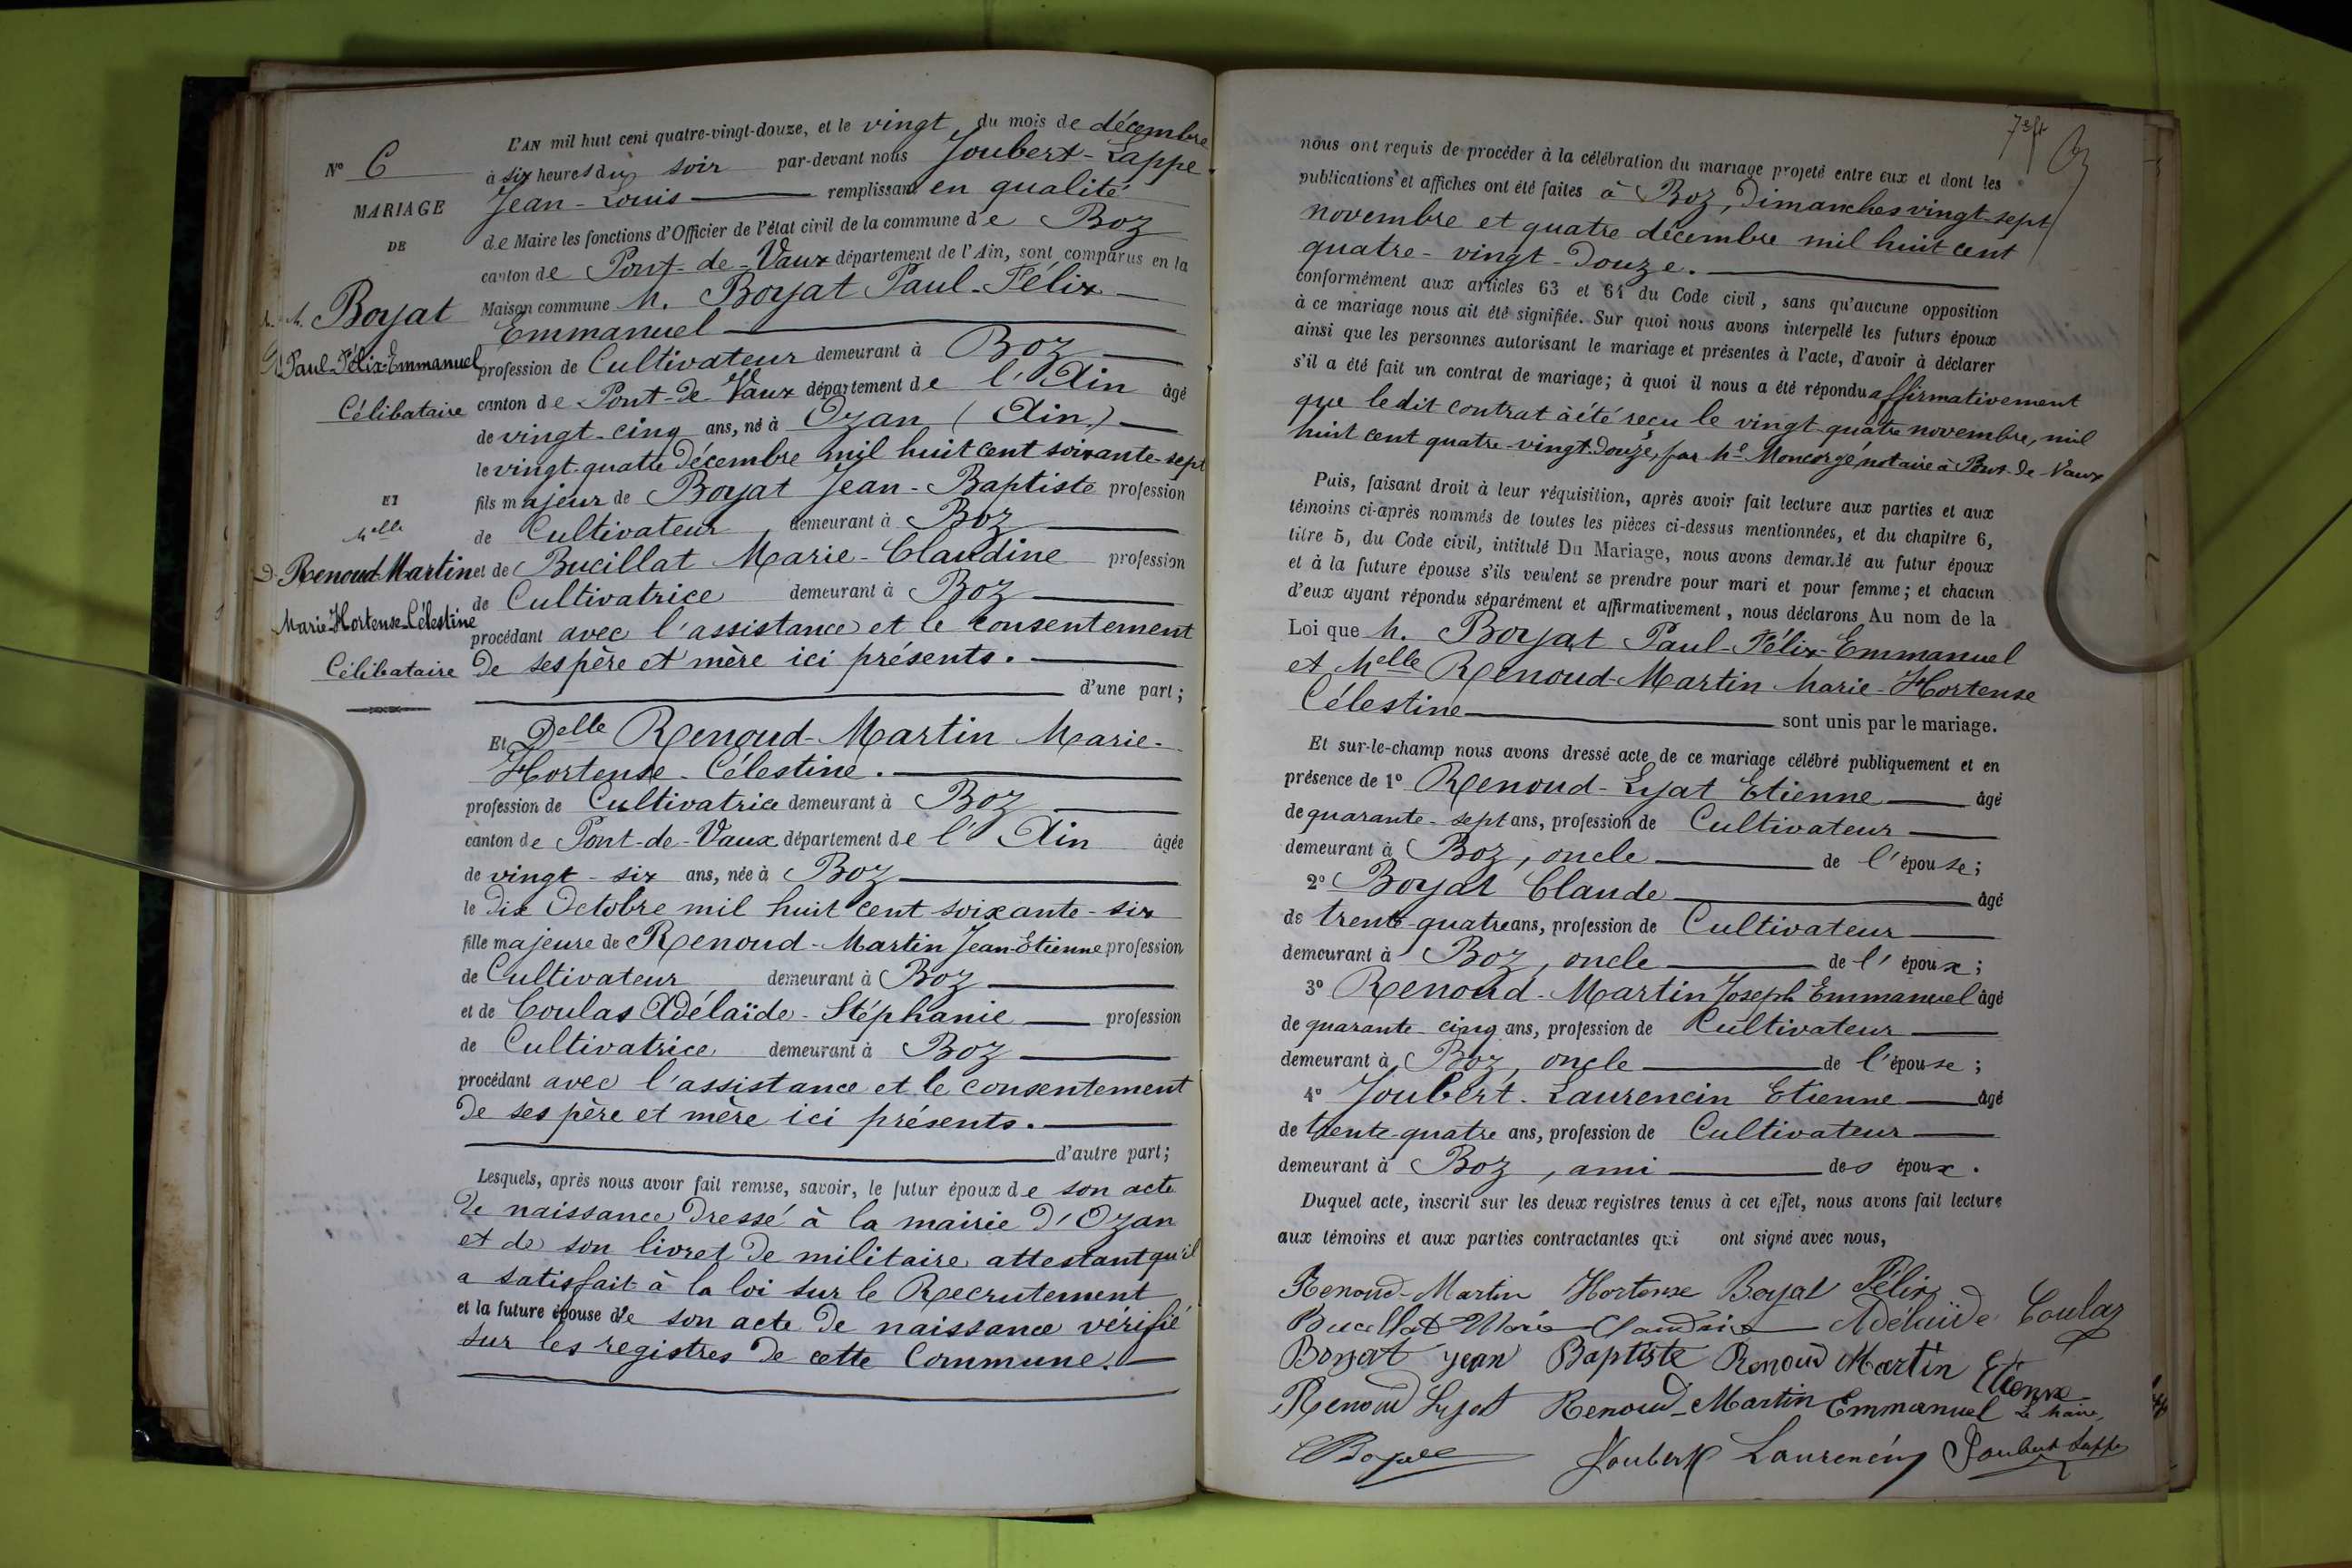 L'AN mil huit cent quatre-vingt-douze, et le vingt du mois de décembre
à six heures du soir par-devant nous Joubert-Lappe
Jean-Louis remplissant en qualité
de Maire les fonctions d'Officier de l'état civil de la commune de Boz
canton de Pont-de-Vaux département de l'Ain, sont comparus en la
Maison commune M. Boyat Paul-Félix
Emmanuel
profession de Cultivateur demeurant à Boz
canton de Pont-de-Vaux département de l'Ain âgé
de vingt-cinq ans, né à Ozan (Ain)
le vingt-quatre Décembre mil huit cent soixante-sept
fils majeur de Boyat Jean-Baptiste profession
de Cultivateur demeurant à Boz
et de Bucillat Marie-Claudine profession
de Cultivatrice demeurant à Boz
procédant avec l'assistance et le consentement
de ses père et mère ici présents.
d'une part;
Et Delle Renoud-Martin Marie-
Hortense-Célestine.
profession de Cultivatrice demeurant à Boz
canton de Pont-de-Vaux département de l'Ain âgée
de vingt-six ans, née à Boz
le Dix Octobre mil huit cent soixante-six
fille majeure de Renoud-Martin Jean-Etienne profession
de Cultivateur demeurant à Boz
et de Coulas Adélaïde-Stéphanie profession
de Cultivatrice demeurant à Boz
procédant avec l'assistance et le consentement
de ses père et mère ici présents.
d'autre part;
Lesquels, après nous avoir fait remise, savoir, le futur époux de son acte
de naissance dressé à la mairie d'Ozan
et de son livret de militaire attestant qu'il
a satisfait à la loi sur le Recrutement
et la future épouse de son acte de naissance vérifié
sur les registres de cette Commune.
N° 6
MARIAGE
DE
M. Boyat
Paul-Félix-Emmanuel
Célibataire
ET
Melle
Renoud-Martin
Marie-Hortense-Célestine
Célibataire
nous ont requis de procéder à la célébration du mariage projeté entre eux et dont les
publications et affiches ont été faites à Boz, Dimanches vingt-sept
novembre et quatre décembre mil huit cent
quatre-vingt-Douze.
conformément aux articles 63 et 64 du Code civil, sans qu'aucune opposition
à ce mariage nous ait été signifiée. Sur quoi nous avons interpellé les futurs époux
ainsi que les personnes autorisant le mariage et présentes à l'acte, d'avoir à déclarer
s'il a été fait un contrat de mariage; à quoi il nous a été répondu affirmativement
que ledit contrat à été reçu le vingt-quatre novembre, mil
huit cent quatre-vingt-douze, par Me Moncorgé, notaire à Pont-de-Vaux
Puis, faisant droit à leur réquisition, après avoir fait lecture aux parties et aux
témoins ci-après nommés de toutes les pièces ci-dessus mentionnées, et du chapitre 6,
titre 5, du Code civil, intitulé Du Mariage, nous avons demandé au futur époux
et à la future épouse s'ils veulent se prendre pour mari et pour femme; et chacun
d'eux ayant répondu séparément et affirmativement, nous déclarons Au nom de la
Loi que M. Boyat Paul-Félix-Emmanuel
et Melle Renoud-Martin Marie-Hortense
Célestine sont unis par le mariage.
Et sur-le-champ nous avons dressé acte de ce mariage célébré publiquement et en
présence de 1° Renoud-Lyat Etienne âgé
de quarante-sept ans, profession de Cultivateur
demeurant à Boz, oncle de l'épouse;
2° Boyat Claude âgé
de trente-quatre ans, profession de Cultivateur
demeurant à Boz, oncle de l'époux;
3° Renoud-Martin Joseph Emmanuel âgé
de quarante-cinq ans, profession de Cultivateur
demeurant à Boz, oncle de l'épouse;
4° Joubert-Laurencin Etienne âgé
de trente-quatre ans, profession de Cultivateur
demeurant à Boz, ami des époux.
Duquel acte, inscrit sur les deux registres tenus à cet effet, nous avons fait lecture
aux témoins et aux parties contractantes qui ont signé avec nous,
Renoud-Martin Hortense Boyat Félix
Bucillat Marie Claudine Adélaïde Coulas
Boyat Jean Baptiste Renoud Martin Etienne
Renoud Lyat Renoud-Martin Emmanuel Le Maire,
Boyat Joubert Laurencin Joubert Lappe